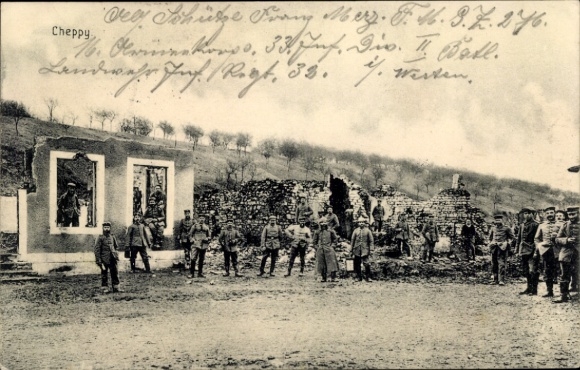 Cheppy
Schütze Franz Merz
16. Armeekorps. 33. Inf. Div. II Batl.
Landwehr Inf. Regt. 32. i/ Westen.